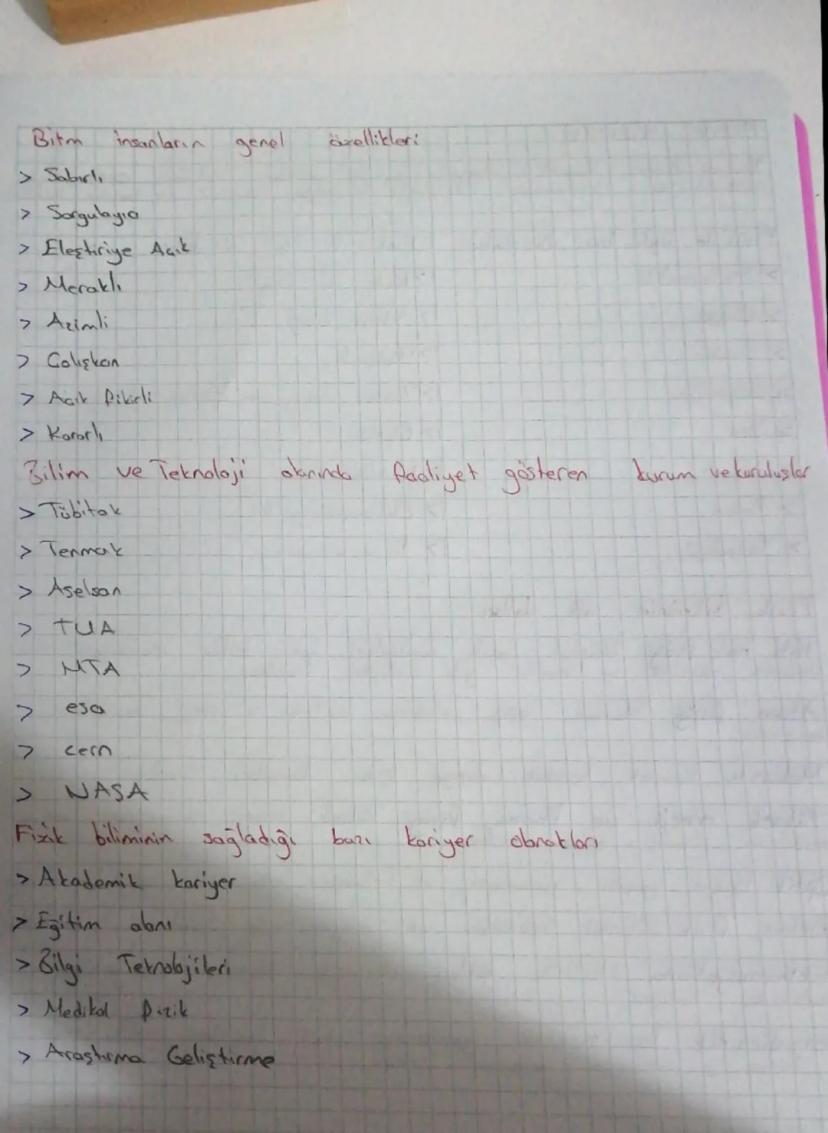 Bilim insanların genel özellikleri
> Sabırlı
> Sorgulayıcı
> Eleştiriye Açık
> Meraklı
> Azimli
> Çalışkan
> Açık fikirli
> Kararlı
Bilim ve Teknoloji alanında faaliyet gösteren kurum ve kuruluşlar
> Tübitak
> Tenmak
> Aselsan
> TUA
> MTA
> esa
> cern
> NASA
Fizik biliminin sağladığı bazı kariyer olanakları
> Akademik kariyer
> Eğitim alanı
> Bilgi Teknolojileri
> Medikal fizik
> Araştırma Geliştirme